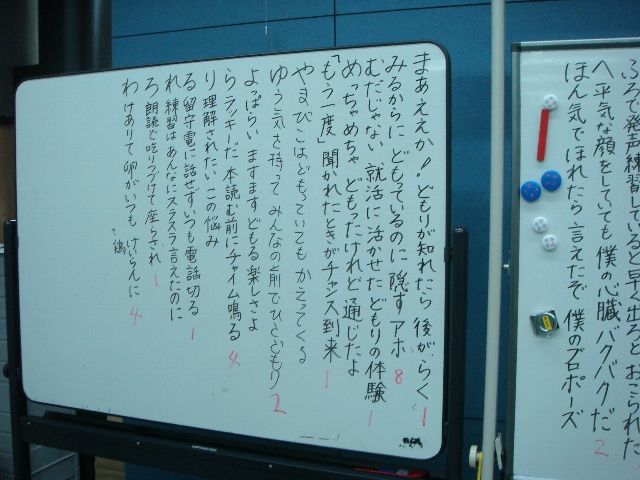 ふろで発声練習していると早く出ろとおこられた
へ平気な顔をしていても僕の心臓バクバクだ 2
ほん気でほれたら言えたぞ僕のプロポーズ
まあええか!どもりが知れたら後がらく 1
みるからにどもっているのに隠すアホ 8
むだじゃない就活に活かせたどもりの体験 1
めっちゃめちゃどもったけれど通じたよ
「もう一度」聞かれたときがチャンス到来 1
やまびこはどもっていてもかえってくる
ゆう気を持ってみんなの前でひとどもり 2
よっぱらいますますどもる楽しさよ
らラッキーだ本読む前にチャイム鳴る 4
り理解されたいこの悩み
る留守電に話せずいつも電話切る 1
れ練習はあんなにスラスラ言えたのに
ろ朗読で吃りつづけて座らされ 1
わけありて卵がいつもけいらんに 4
?鶏